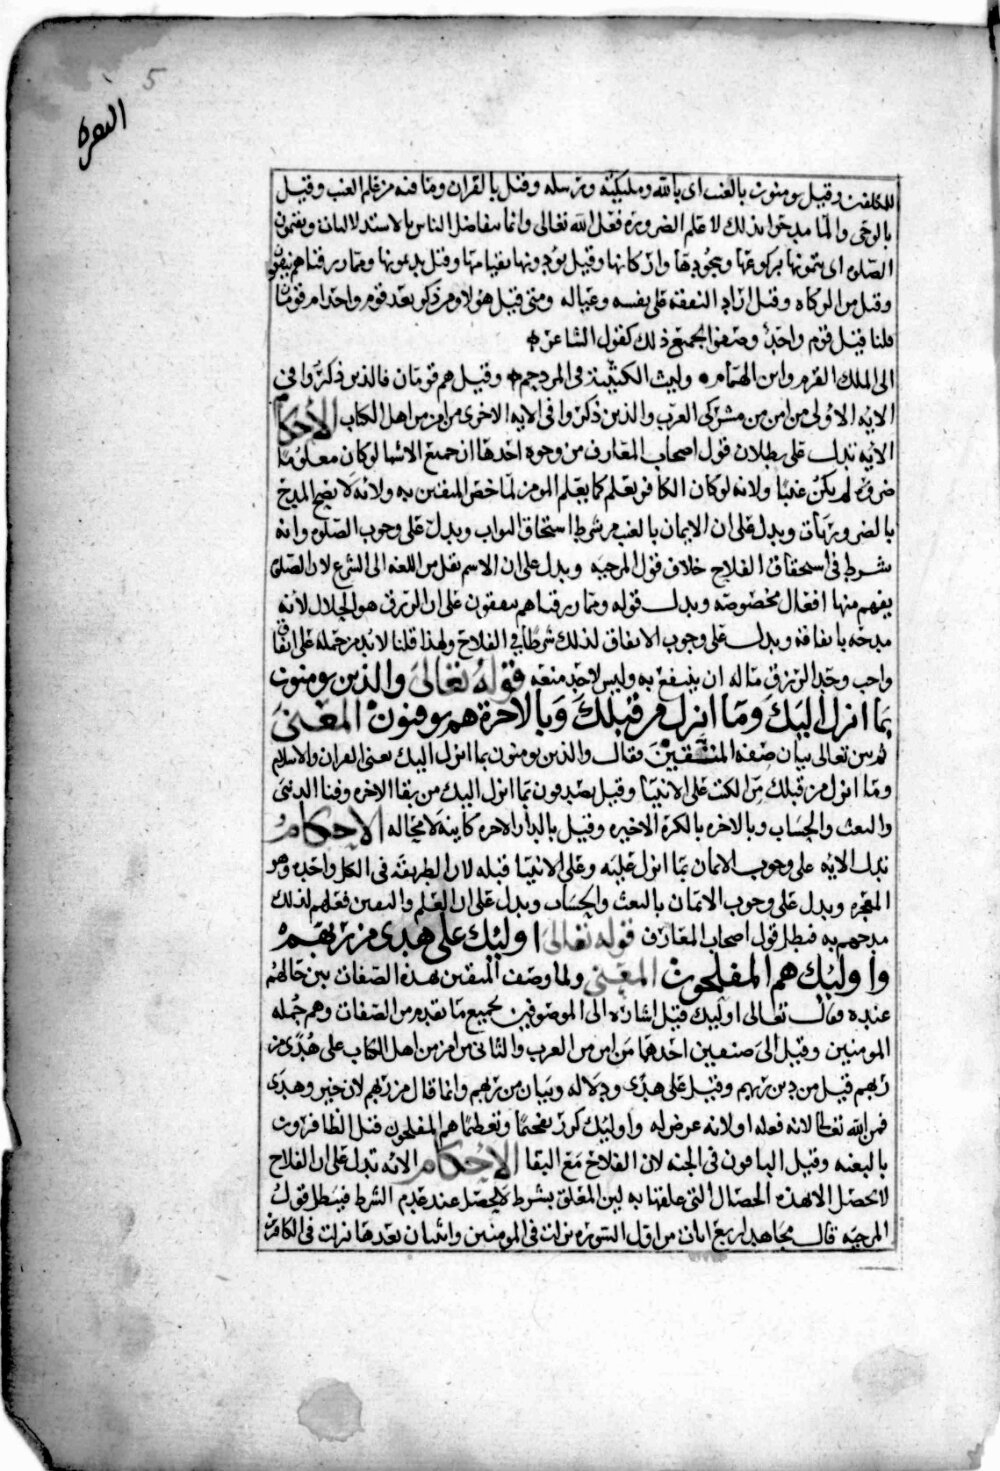 5
البقره
للمكلفين وقيل يومنون بالغيب اى بالله ومليكته ورسله وقيل بالقران وما فيه من علم الغيب وقيل
بالوحى وانما مدحوا بذلك لا علم الضرورة فعل الله تعالى وانما يتفاضل الناس بالاستدلال ويقيمون
الصلوه اى يتمونها بركوعها وسجودها واركانها وقيل يودونها بقيامها وقيل يديمونها ومما رزقناهم ينفقون
وقيل من الزكاه وقيل اراد النفقه على نفسه وعياله ومتى قيل هولا ومن ذكر بعد قوم واحد ام قومان
قلنا قيل قوم واحد وصفوا بجميع ذلك كقول الشاعر
الى الملك القرم وابن الهمام وليث الكتيبة فى المزدحم وقيل هم قومان فالذين ذكروا فى
الايه الاولى من امن من مشركى العرب والذين ذكروا فى الايه الاخرى من امن من اهل الكتاب الاحكام
الايه تدل على بطلان قول اصحاب المعارف من وجوه احدها ان جميع الاشيا لو كان معلوما
ضرورة لم يكن غيبا ولانه لو كان الكافر يعلم كما يعلم المومن لما خص المتقين به ولانه لا يصح المدح
بالضروريات ويدل على ان الايمان بالغيب من شرط استحقاق الثواب ويدل على وجوب الصلوه وانه
شرط فى استحقاق الفلاح خلاف قول المرجيه ويدل على ان الاسم نقل من اللغه الى الشرع لان الصلوة
يفهم منها افعال مخصوصه ويدل قوله ومما رزقناهم ينفقون على ان الرزق هو الحلال لانه
مدحه بانفاقه ويدل على وجوب الانفاق لذلك شرطا فى الفلاح ولهذا قلنا لا بد من حمله على انفاق
واجب وحد الرزق ماله ان ينتفع به وليس لاحد منعه قوله تعالى والذين يومنون
بما انزل اليك وما انزل من قبلك وبالاخرة هم يوقنون المعنى
ثم بين تعالى بيان صفه المتقين فقال والذين يومنون بما انزل اليك يعنى القران والاسلام
وما انزل من قبلك من الكتب على الانبيا وقيل يصدقون بما انزل اليك من بقا الاخره وفنا الدنيى
والبعث والحساب وبالاخره بالكرة الاخيره وقيل بالدار الاخره كاينه لا محاله الاحكام و
تدل الايه على وجوب الايمان بما انزل عليه وعلى الانبيا قبله لان الطريقه فى الكل واحده وهو
المعجزه ويدل على وجوب الايمان بالبعث والحساب ويدل على ان العلم واليقين فعلهم لذلك
مدحهم به فبطل قول اصحاب المعارف قوله تعالى اوليك على هدى من ربهم
واوليك هم المفلحون المعنى ولما وصف المتقين بهذه الصفات بين حالهم
عنده فقال تعالى اوليك قيل اشاره الى الموصوفين بجميع ما تقدم من الصفات وهم جمله
المومنين وقيل الى صنفين احدهما من امن من العرب والثانى من امن من اهل الكتاب على هدى من
ربهم قيل من دين ربهم وقيل على هدى ودلاله وبيان من ربهم وانما قال من ربهم لان خير وهدى
فمن الله تعالى لانه فعله او لانه عرض له واوليك كرر تفخيما وتعظيما هم المفلحون قيل الظافرون
بالبغيه وقيل الباقون فى الجنه لان الفلاح مع البقا الاحكام الايه تدل على ان الفلاح
لا يحصل الا بهذه الخصال التى علقها به لان المعلق بشرط لا يحصل عند عدم الشرط فيبطل قول
المرجيه قال مجاهد اربع ايات من اول السوره نزلت فى المومنين واثنان بعدها نزلت فى الكافرين